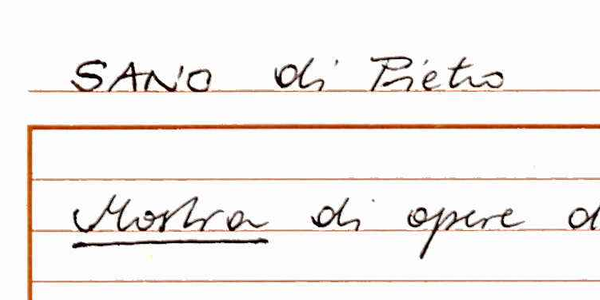 SANO di Pietro
Mostra di opere d